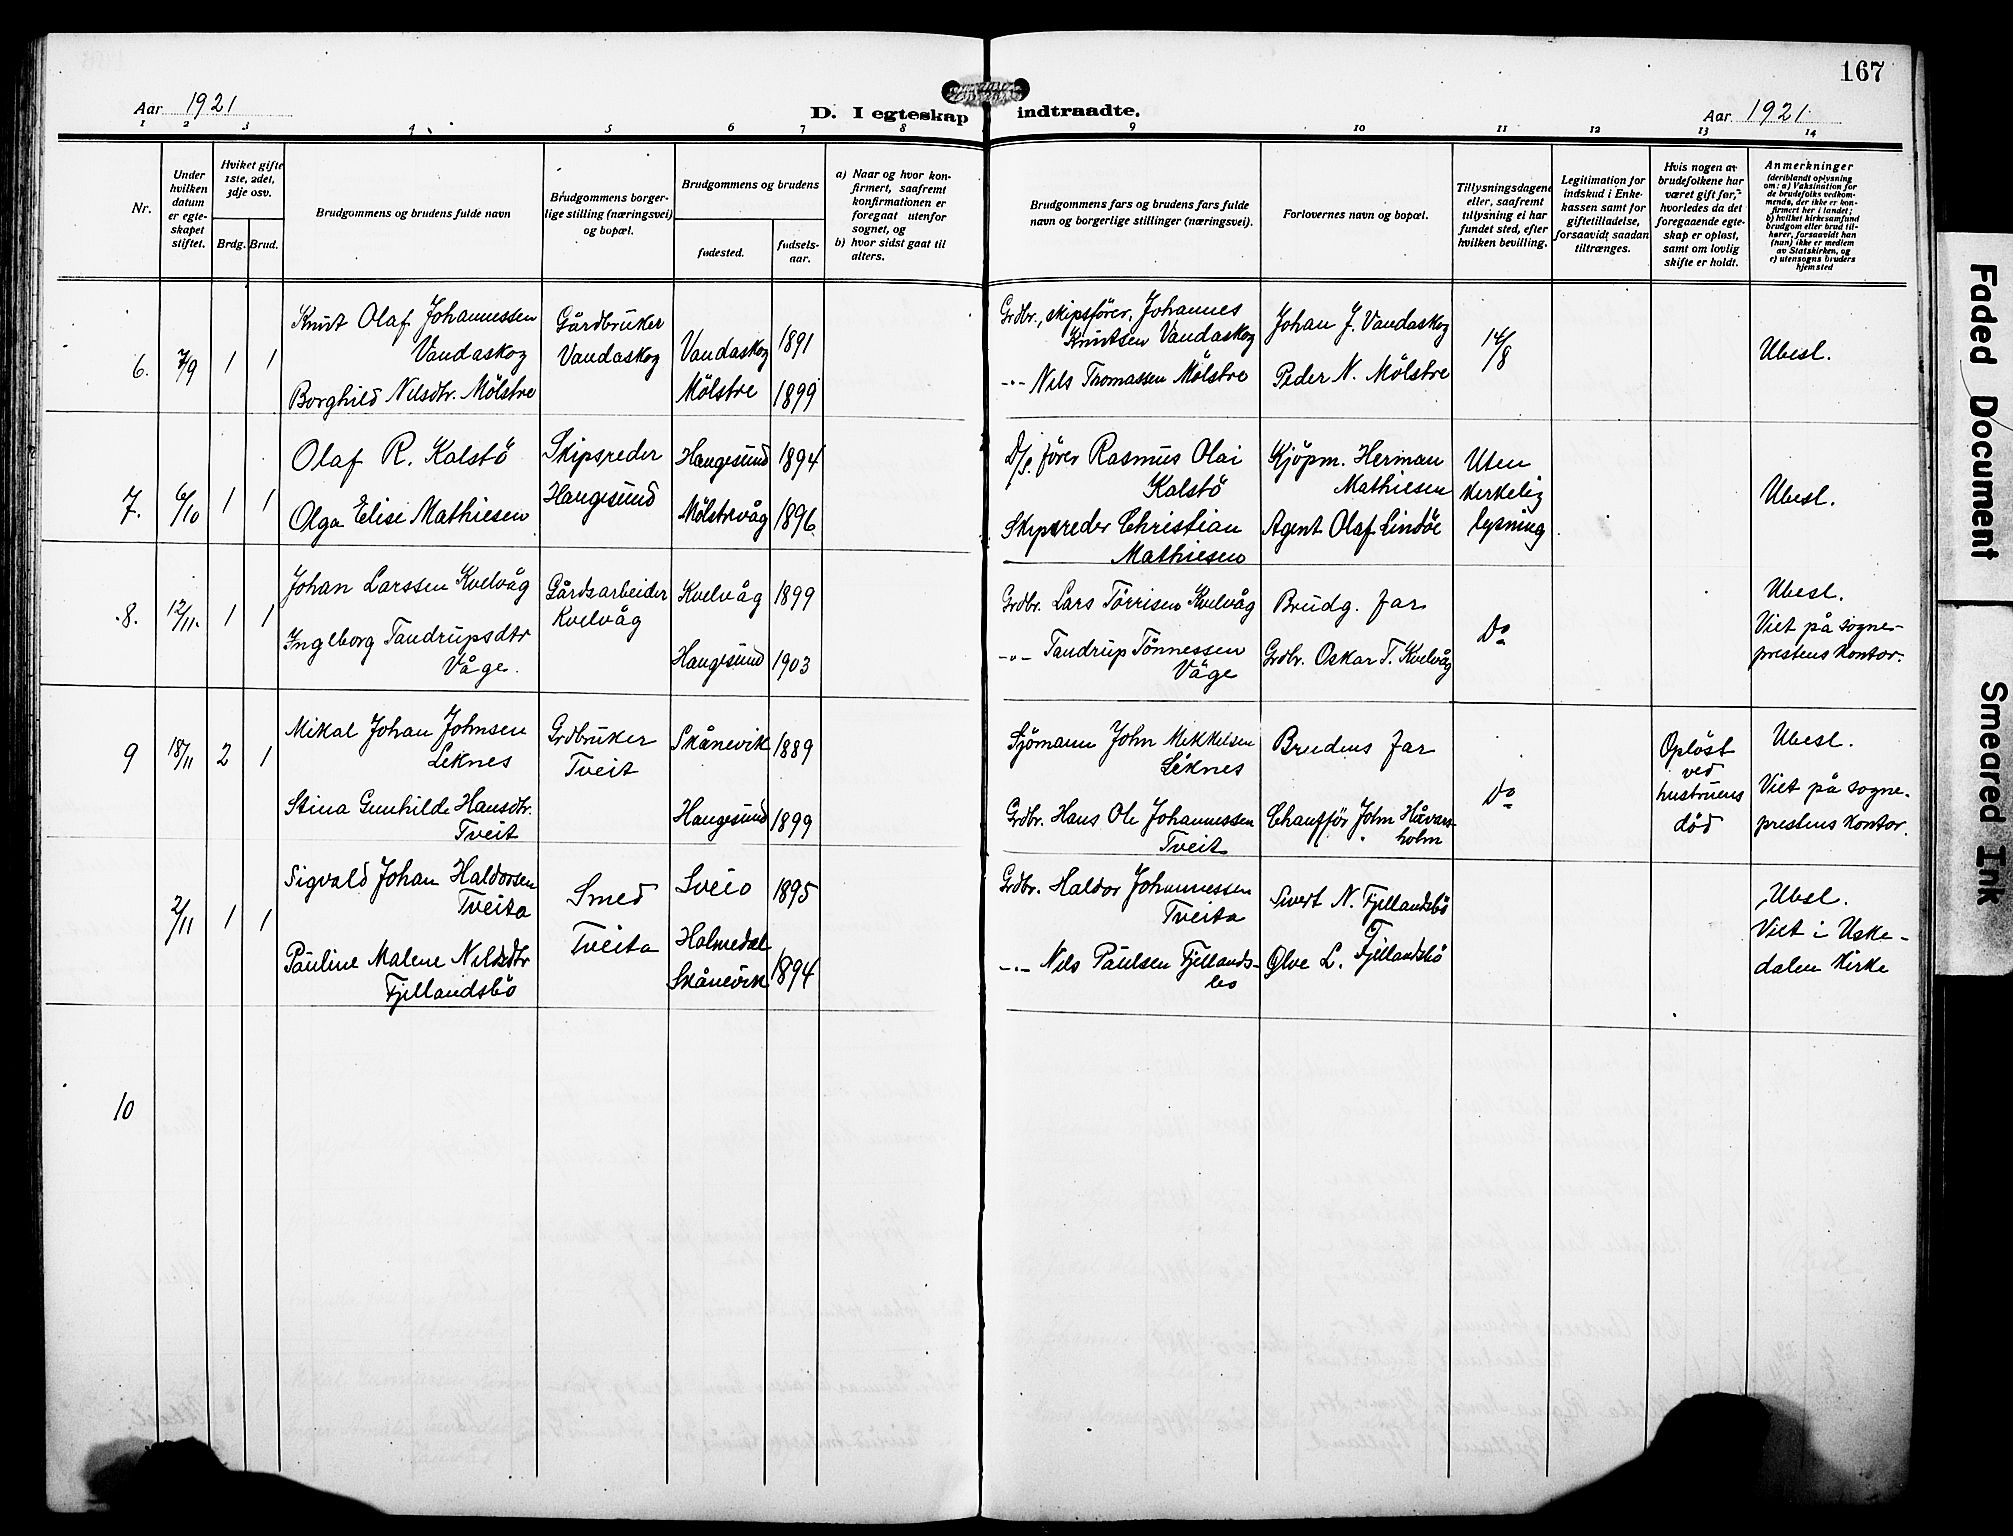 167
Aar 1921
D. I egteskap indtraadte.
Aar 1921
1 2 3 4 5 6 7 8 9 10 11 12 13 14
Nr.
Under
hvilken
datum
er egte-
skapet
stiftet.
Hviket gifte
1ste, 2det,
3dje osv.
Brdg. Brud.
Brudgommens og brudens fulde navn
Brudgommens borger-
lige stilling (næringsvei)
og bopæl.
Brudgommens og brudens
fødested.
fødsels-
aar.
a) Naar og hvor kon-
firmert, saafremt
konfirmationen er
foregaat utenfor
sognet, og
b) hvor sidst gaat til
alters.
Brudgommens fars og brudens fars fulde
navn og borgerlige stillinger (næringsvei).
Forlovernes navn og bopæl.
Tillysningsdagene
eller, saafremt
tillysning ei har
fundet sted, efter
hvilken bevilling.
Legitimation for
indskud i Enke-
kassen samt for
giftetilladelse,
forsaavidt saadan
tiltrænges.
Hvis nogen av
brudefolkene har
været gift før,
hvorledes da det
foregaaende egte-
skap er opløst,
samt om lovlig
skifte er holdt.
Anmerkninger
(deriblandt oplysning
om: a) Vaksination for
de brudefolks vedkom-
mende, der ikke er kon-
firmert her i landet;
b) hvilket kirkesamfund
brudgom eller brud til-
hører, forsaavidt han
(hun) ikke er medlem
av Statskirken, og
c) utensogns bruders
hjemsted
6. 7/9 1 1
Knut Olaf Johannessen
Vandaskog
Borghild Nilsdtr. Mølstre
Gårdbruker
Vandaskog
Vandaskog 1891
Mølstre 1899
Grdbr., skipsfører, Johannes
Knutsen Vandaskog
-"- Nils Thomassen Mølstre
Johan J. Vandaskog
Peder N. Mølstre
14/8
Ubesl.
7. 6/10 1 1
Olaf R. Kalstö
Olga Elise Mathiesen
Skipsreder
Haugesund
Haugesund 1894
Mølstrevåg 1896
D/s. fører Rasmus Olai
Kalstö
Skipsreder Christian
Mathiesen
Kjøpm. Herman
Mathiesen
Agent Olaf Lindöe
Uten
kirkelig
lysning
Ubesl.
8. 12/11. 1 1
Johan Larssen Kvelvåg
Ingleborg Tandrupsdtr
Våge.
Gårdsarbeider
Kvelvåg
Kvelvåg 1899
Haugesund 1903
Grdbr. Lars Törrisen Kvelvåg
-"- Tandrup Tönnessen
Våge
Brudg. far
Grdbr. Oskar T. Kvelvåg
Do
Ubesl.
Viet på sogne-
prestens kontor.
9 18/11 2 1
Mikal Johan Johnsen
Leknes
Stina Gunhilde Hansdtr.
Tveit
Grdbruker
Tveit
Skånevik 1889
Haugesund 1899
Sjömann John Mikkelsen
Leknes
Grdbr. Hans Ole Johannessen
Tveit
Brudens far
Chaufför John Håvars-
holm
Do
Opløst
ved
hustruens
död
Ubesl.
Viet på sogne-
prestens kontor.
2/11 1 1
Sigvald Johan Haldorsen
Tveita
Pauline Malene Nilsdtr
Fjellandsbö
Smed
Tveita
Sveio 1895
Holmedal
Skånevik 1894
Grdbr. Haldor Johannessen
Tveita
-"- Nils Paulsen Fjellands-
bö
Sivert N. Fjellandsbö
Ølve L. Fjellandsbö
Ubesl.
Viet i Uske-
dalen kirke
10
Faded Document
Smeared Ink